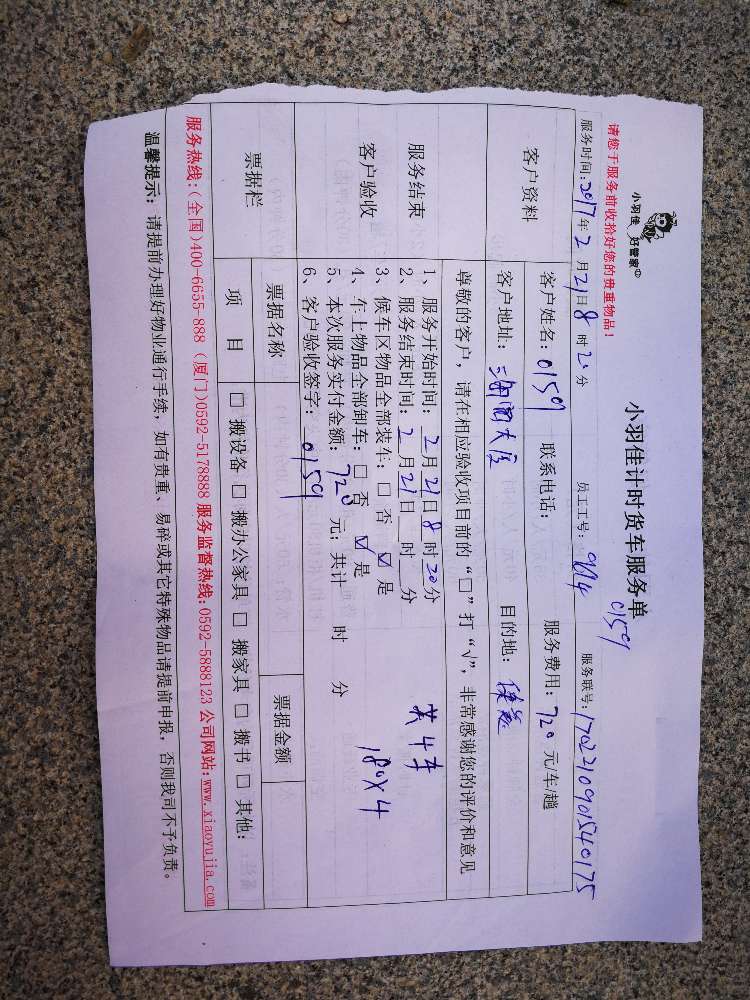 小羽佳 好管家
小羽佳计时货车服务单
0159
请您于服务前收拾好您的贵重物品!
服务时间:2017年2月21日8时20分 员工工号:9114 服务联号:1702210901540175
客户资料
客户姓名:0159 联系电话: 服务费用:720元/车/趟
客户地址: 目的地:
服务结束
客户验收
尊敬的客户,请在相应验收项目前的“□”打“√”,非常感谢您的评价和意见
1、服务开始时间:2月21日8时20分
2、服务结束时间:2月21日 时 分
3、候车区物品全部装车:□ 否 ☑ 是
4、车上物品全部卸车:□ 否 ☑ 是
5、本次服务实付金额:720元;共计 时 分
6、客户验收签字:0159
共4车
180×4
票据栏
票据名称 票据金额
项 目 □ 搬设备 □ 搬办公家具 □ 搬家具 □ 搬书 □ 其他:
服务热线:(全国)400-6655-888 (厦门)0592-5178888 服务监督热线:0592-5888123 公司网站:www.xiaoyujia.com
温馨提示:请提前办理好物业通行手续,如有贵重、易碎或其它特殊物品请提前申报,否则我司不予负责。